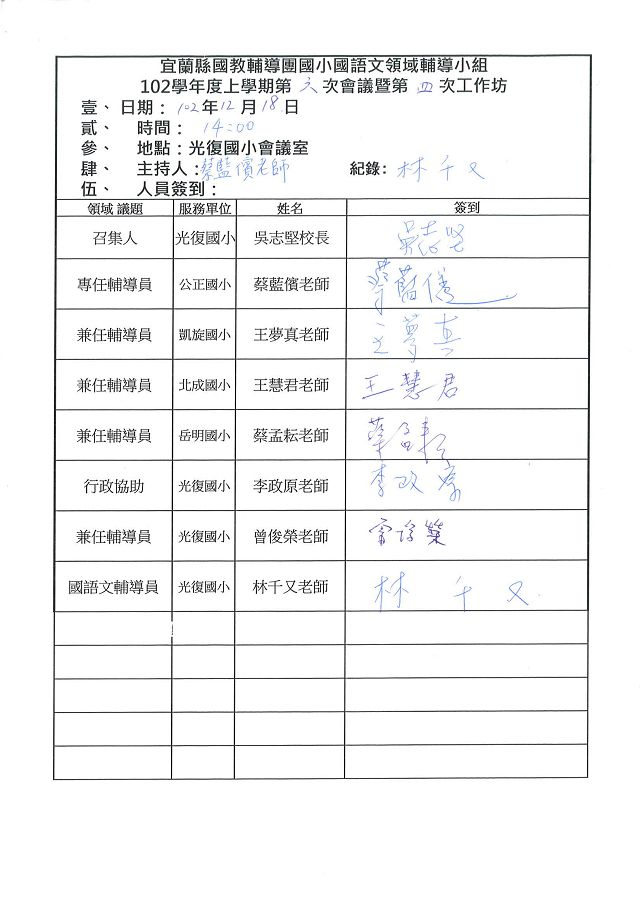 宜蘭縣國教輔導團國小國語文領域輔導小組
102學年度上學期第 六 次會議暨第 四 次工作坊
壹、 日期： 102 年 12 月 18 日
貳、 時間： 14:00
參、 地點：光復國小會議室
肆、 主持人：蔡藍儐老師 紀錄： 林千又
伍、 人員簽到：
領域 議題 服務單位 姓名 簽到
召集人 光復國小 吳志堅校長 吳志堅
專任輔導員 公正國小 蔡藍儐老師 蔡藍儐
兼任輔導員 凱旋國小 王夢真老師 王夢真
兼任輔導員 北成國小 王慧君老師 王慧君
兼任輔導員 岳明國小 蔡孟耘老師 蔡孟耘
行政協助 光復國小 李政原老師 李政原
兼任輔導員 光復國小 曾俊榮老師 曾俊榮
國語文輔導員 光復國小 林千又老師 林千又